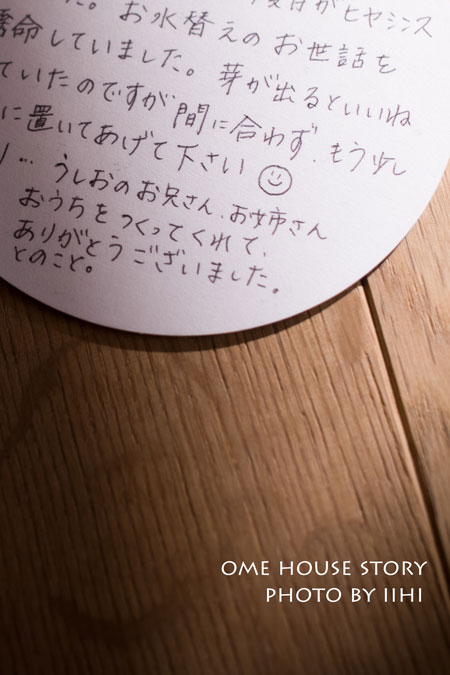 た。お水替えのお世話を
命していました。芽が出るといいね
ていたのですが間に合わず、もう少し
に置いてあげて下さい
… うしおのお兄さん、お姉さん
おうちをつくってくれて、
ありがとうございました。
とのこと。
OME HOUSE STORY
PHOTO BY IIHI